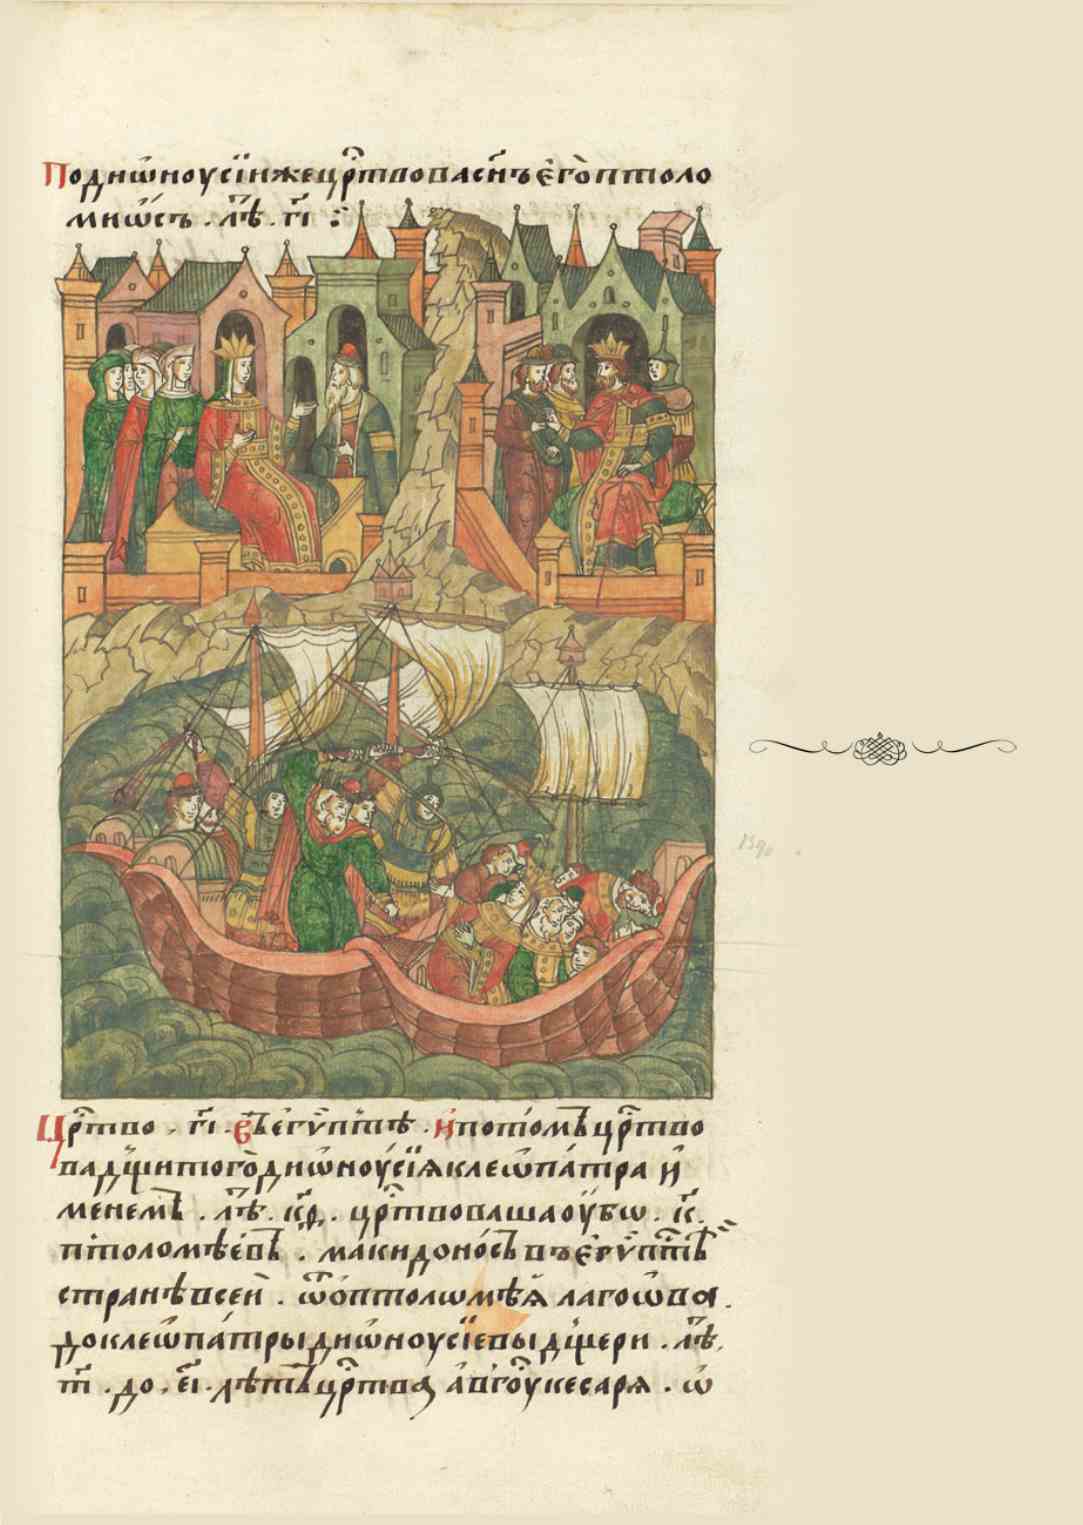 Поднѡноусїиже црⷭ҇твова сн҃ъ є҆го̀ птоло
миѡ́съ . лѣⷮ . гі҃ :
Црⷭ҇тво . гі҃ . въ є҆гѵ́птѣ . и҆ потомъ црⷭ҇тво
ва дщи того̀ дниѡноусїꙗ клеѡпа́тра и҆
менемъ . лѣⷮ . к҃д . црⷭ҇твоваша оу҆бѡ . і҃к .
птоломѣевъ . македоно́съ въ є҆гѵ́птѣ
странѣ всеи . ѿ птолѡмѣꙗ лагоѡва .
до клеѡпа́тры дниѡноусїевы дщери . лѣⷮ .
т҃ . до . є҃і . лѣⷮ црⷭ҇тва а҆́вгоу кесарꙗ . ѡ